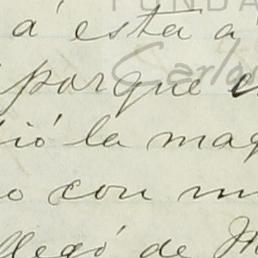 FUNDA
á esta á
Carlos
porque
ió la maq
o con m
llegó de